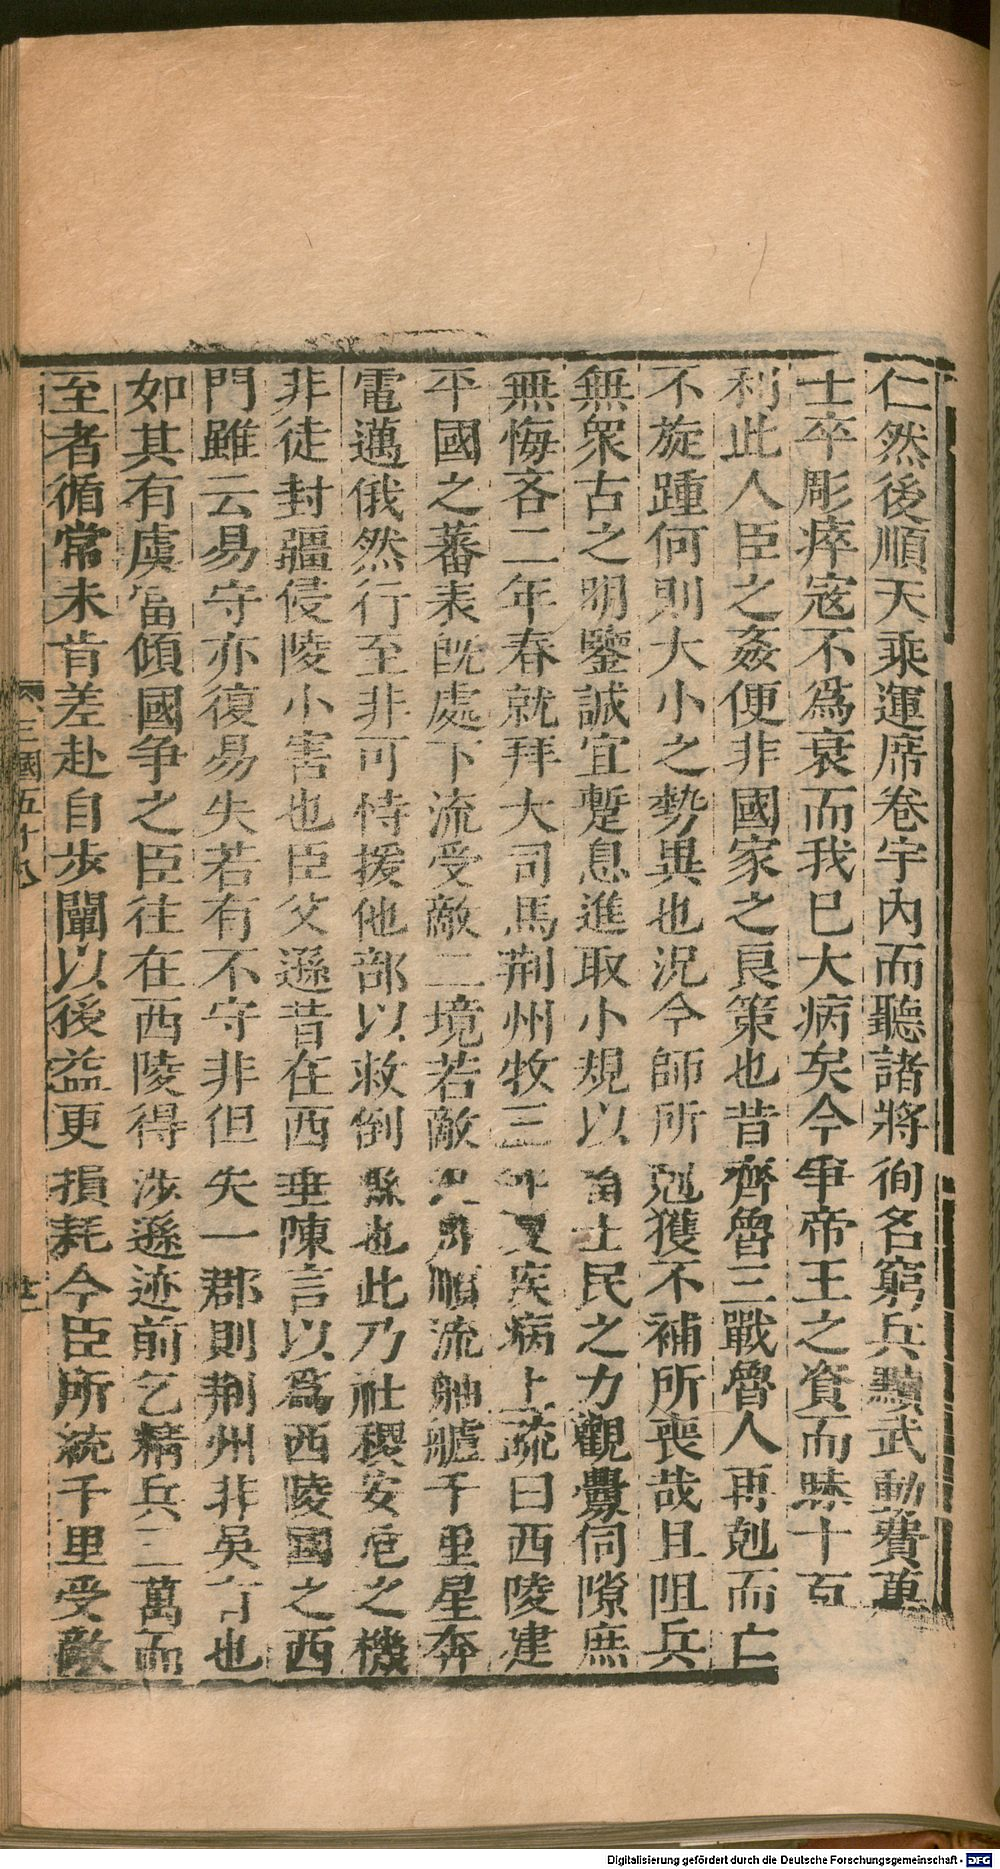 仁然後順天乘運席卷宇內而聽諸將徇名窮兵黷武動費萬
士卒彫瘁寇不爲衰而我已大病矣今爭帝王之資而昧十百
利此人臣之姦便非國家之良策也昔齊魯三戰魯人再剋而亡
不旋踵何則大小之勢異也況今師所剋獲不補所喪哉且阻兵
無衆古之明鑒誠宜蹔息進取小規以畜士民之力觀釁伺隙庶
無悔吝二年春就拜大司馬荆州牧三年夏疾病上疏曰西陵建
平國之蕃表旣處下流受敵二境若敵汎舟順流舳艫千里星奔
電邁俄然行至非可恃援他部以救倒縣也此乃社稷安危之機
非徒封疆侵陵小害也臣父遜昔在西垂陳言以爲西陵國之西
門雖云易守亦復易失若有不守非但失一郡則荆州非吳有也
如其有虞當傾國争之臣往在西陵得涉遜迹前乞精兵三萬而
至者循常未肯差赴自步闡以後益更損耗今臣所統千里受敵
三國五十八 廿一
Digitalisierung gefördert durch die Deutsche Forschungsgemeinschaft - DFG